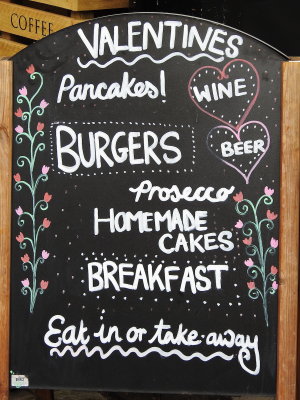 COFFEE
VALENTINES
Pancakes!
WINE
BURGERS
BEER
Prosecco
HOMEMADE
CAKES
BREAKFAST
Eat in or take-away